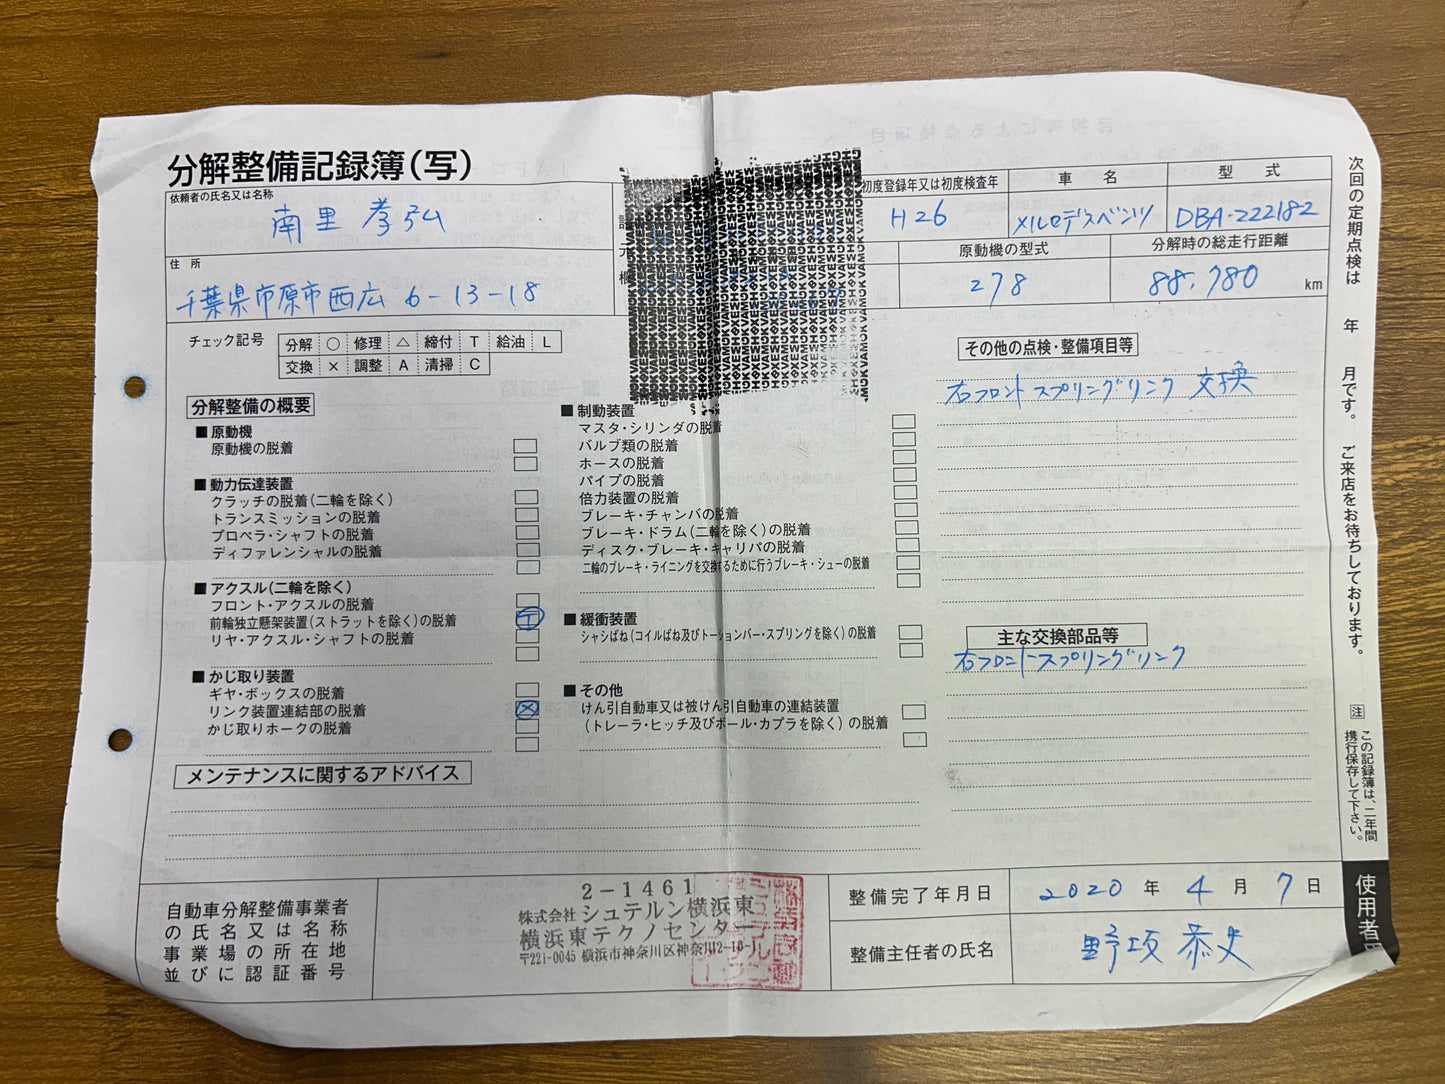 分解整備記録簿(写)
依頼者の氏名又は名称
南里 孝弘
住所
千葉県市原市西広 6-13-18
初度登録年又は初度検査年
H26
車名
メルセデスベンツ
型式
DBA-222182
原動機の型式
278
分解時の総走行距離
88,780 km
チェック記号
分解 ○ 修理 △ 締付 T 給油 L
交換 × 調整 A 清掃 C
分解整備の概要
■ 原動機
原動機の脱着
■ 動力伝達装置
クラッチの脱着(二輪を除く)
トランスミッションの脱着
プロペラ・シャフトの脱着
ディファレンシャルの脱着
■ アクスル(二輪を除く)
フロント・アクスルの脱着
前輪独立懸架装置(ストラットを除く)の脱着 T
リヤ・アクスル・シャフトの脱着
■ かじ取り装置
ギヤ・ボックスの脱着
リンク装置連結部の脱着 ×
かじ取りホークの脱着
■ 制動装置
マスタ・シリンダの脱着
バルブ類の脱着
ホースの脱着
パイプの脱着
倍力装置の脱着
ブレーキ・チャンバの脱着
ブレーキ・ドラム(二輪を除く)の脱着
ディスク・ブレーキ・キャリパの脱着
二輪のブレーキ・ライニングを交換するために行うブレーキ・シューの脱着
■ 緩衝装置
シャシばね(コイルばね及びトーションバー・スプリングを除く)の脱着
■ その他
けん引自動車又は被けん引自動車の連結装置
(トレーラ・ヒッチ及びボール・カプラを除く)の脱着
その他の点検・整備項目等
右フロント スプリングリンク 交換
主な交換部品等
右フロントスプリングリンク
メンテナンスに関するアドバイス
自動車分解整備事業者
の氏名又は名称
事業場の所在地
並びに認証番号
2-1461
株式会社 シュテルン横浜東
横浜東テクノセンター
〒221-0045 横浜市神奈川区神奈川2-16-1
整備完了年月日
2020 年 4 月 7 日
整備主任者の氏名
野坂 恭史
次回の定期点検は 年 月です。 ご来店をお待ちしております。
注 この記録簿は、二年間
携行保存して下さい。
使用者